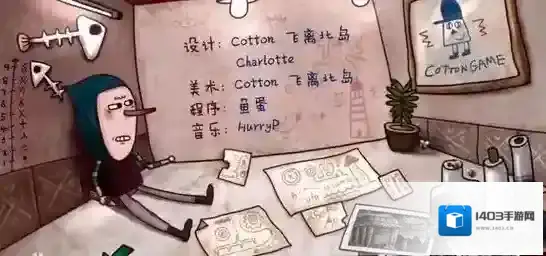 设计: Cotton 飞离北岛
Charlotte
美术: Cotton 飞离北岛
程序: 鱼蛋
音乐: HurryP
COTTONGAME
1403手游网